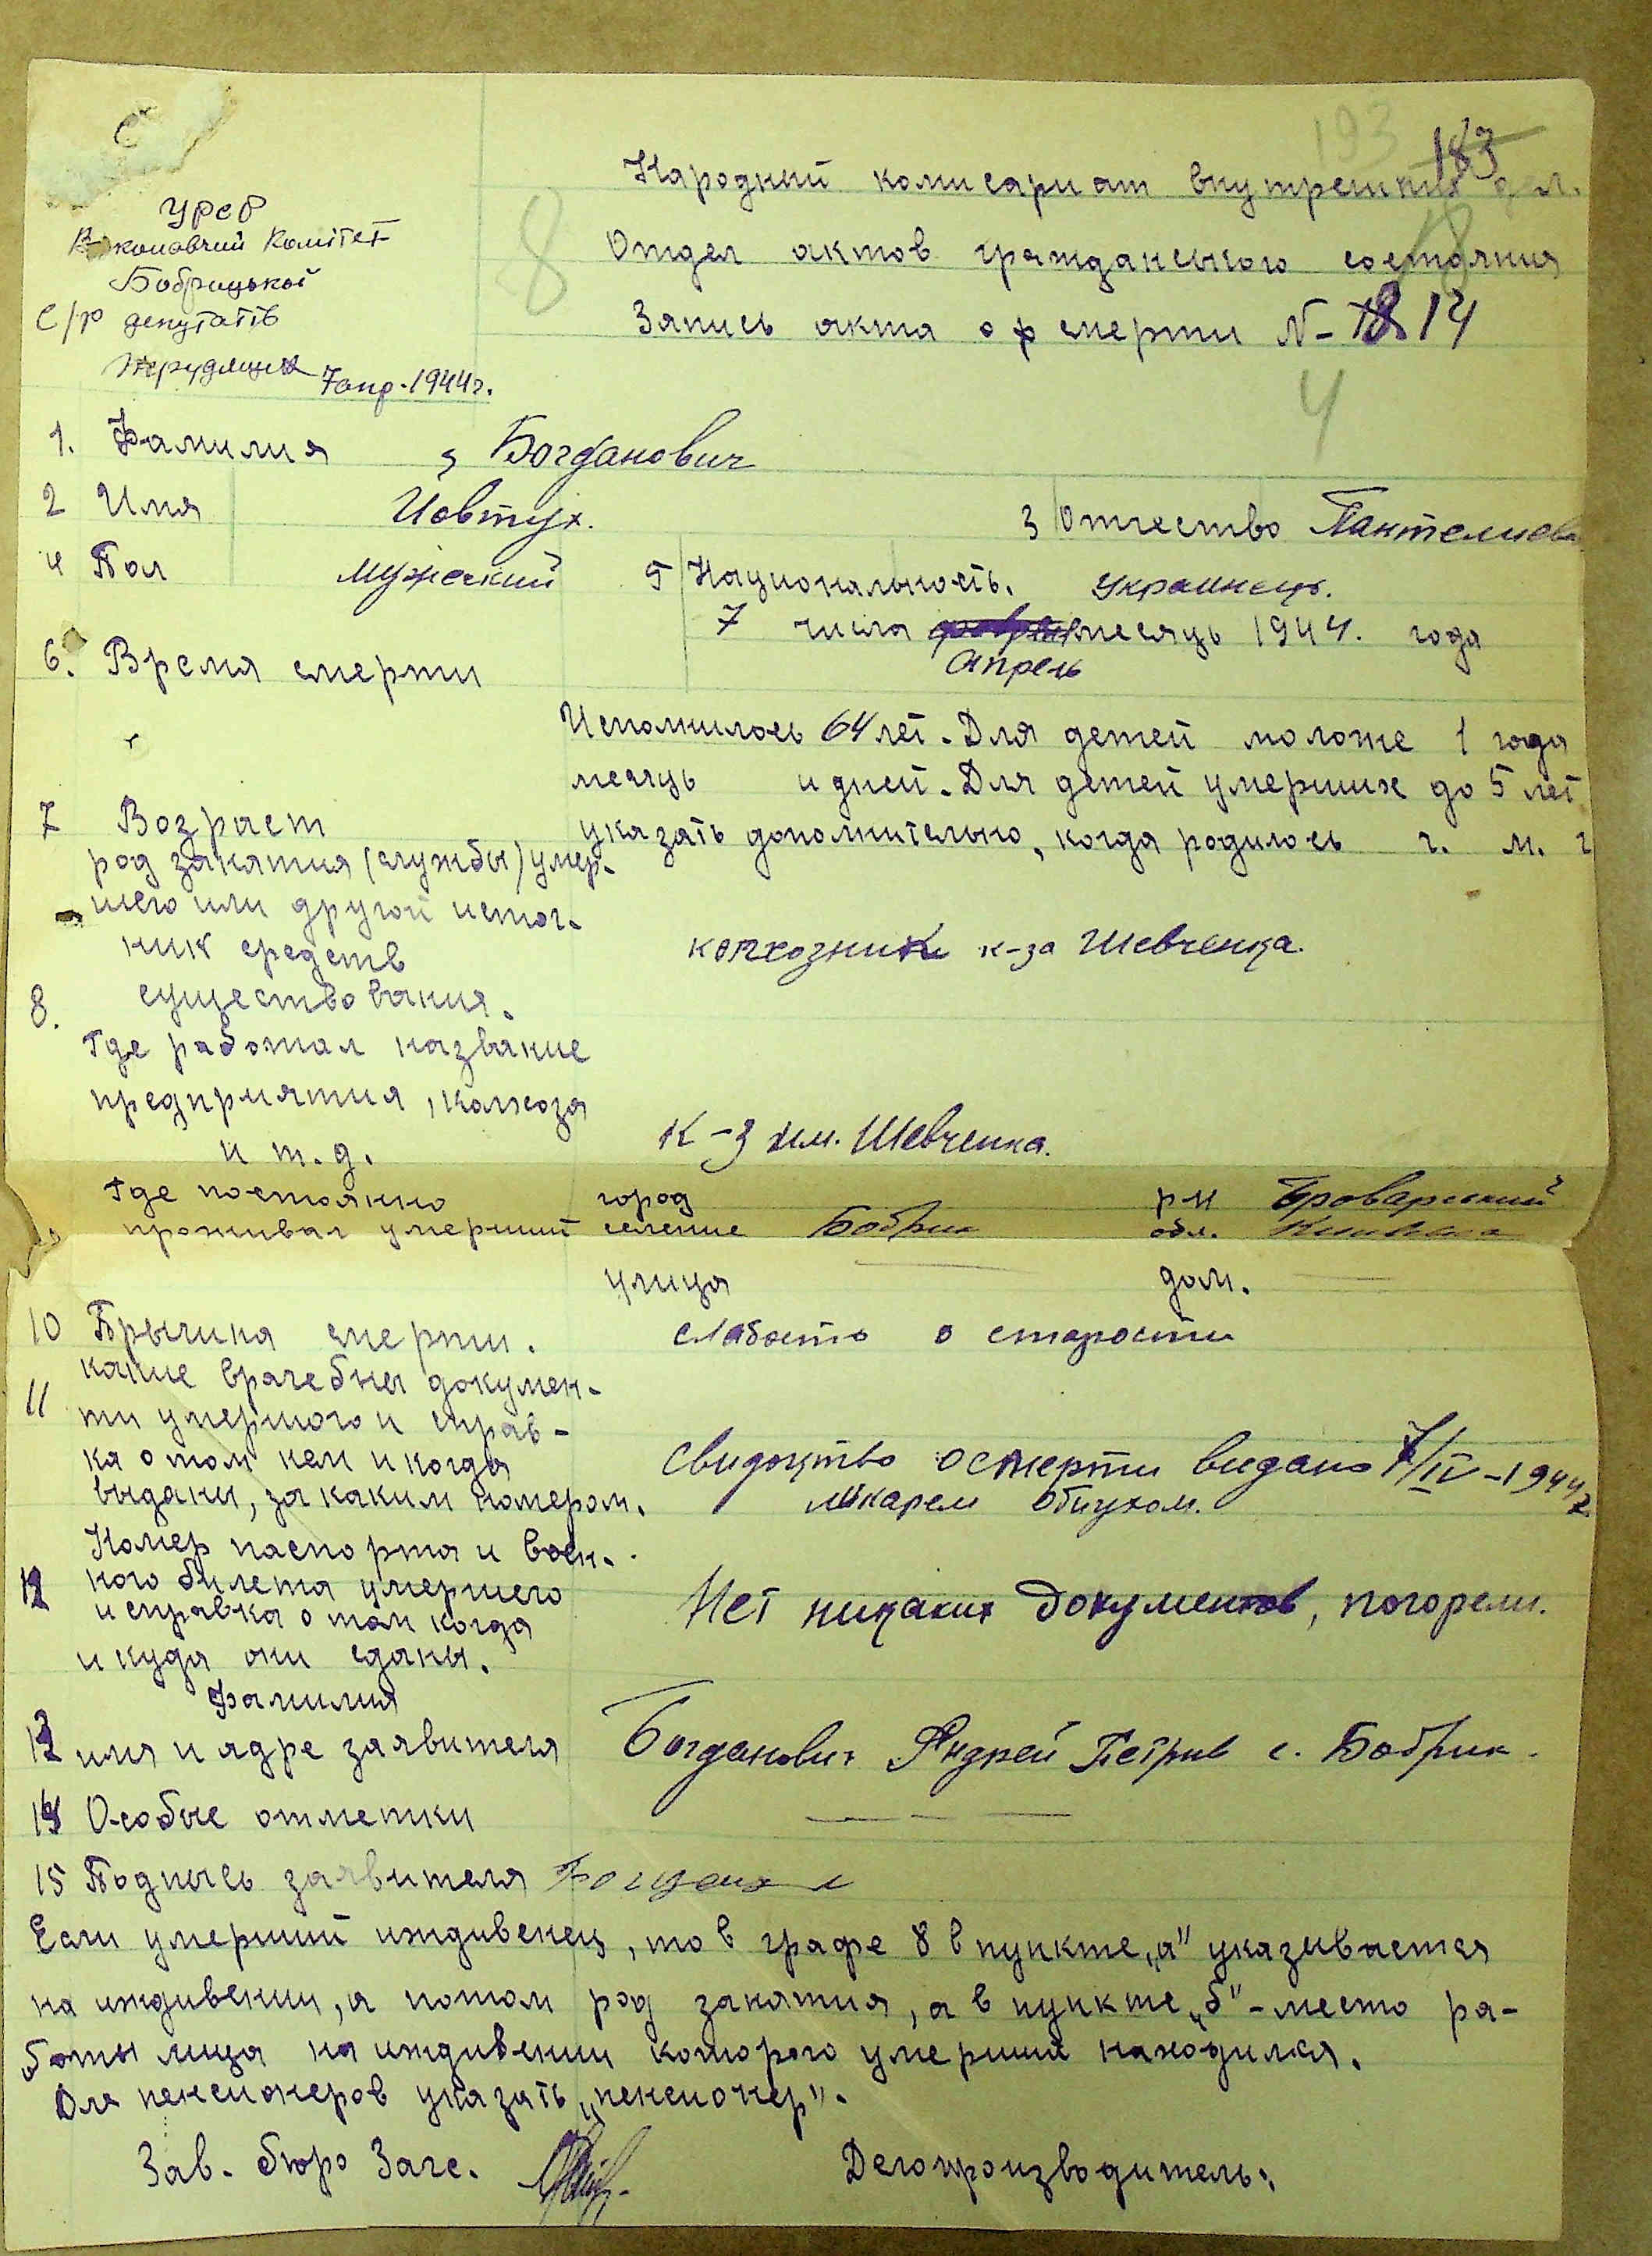 193
183
Народный комисариат внутрешних дел.
УРСР
Виконавчий Комітет
Бобрицької
С/р депутатів
трудящих
8
Отдел актов гражданського состояния
18
Запись акта о смерти N- 18 14
7 апр. 1944 г.
4
1. Фамилия Богданович
2 Имя Иовтух. 3 Отчество Пантелиев
4 Пол мужеский 5 Национальность. украинець.
6. Время смерти 7 числа февраль месяць 1944. года
апрель
Исполнилось 64 лет. Для детей моложе 1 года
месяць и дней. Для детей умерших до 5 лет
7 Возраст указать дополнительно, когда родилось ч. м. г
род занятия (службы) умер-
шего или другой источ-
ник средств колхозник к-за Шевченка.
8. существования.
Где работал название
предприятия, колхоза
и т.д. К-з им. Шевченка.
Где постоянно город р-н Броварський
проживал умерший селение Бобрик обл. Киивська
улица дом.
10 Прычина смерти. слабость о старости
11 какие врачебны докумен-
ти умершого и справ-
ка о том кем и когда свидоцтво о смерти видано 7/IV-1944 г
выданы, за каким номером. лікарем
Номер паспорта и воен-
12 ного билета умершего Нет никаких документов, погорели.
и справка о том когда
и куда они сданы.
Фамилия
13 имя и адре заявителя Богданович Андрей Петрив с. Бобрик.
14 Особые отметки
15 Подпысь заявителя
Если умерший иждивенец, то в графе 8 в пункте „а" указывается
на иждивении, а потом род занятия, а в пункте „б"-место ра-
боты лица на иждивении которого умерший находился.
Для пенсионеров указать „пенсионер".
Зав. бюро Загс. Делопроизводитель: